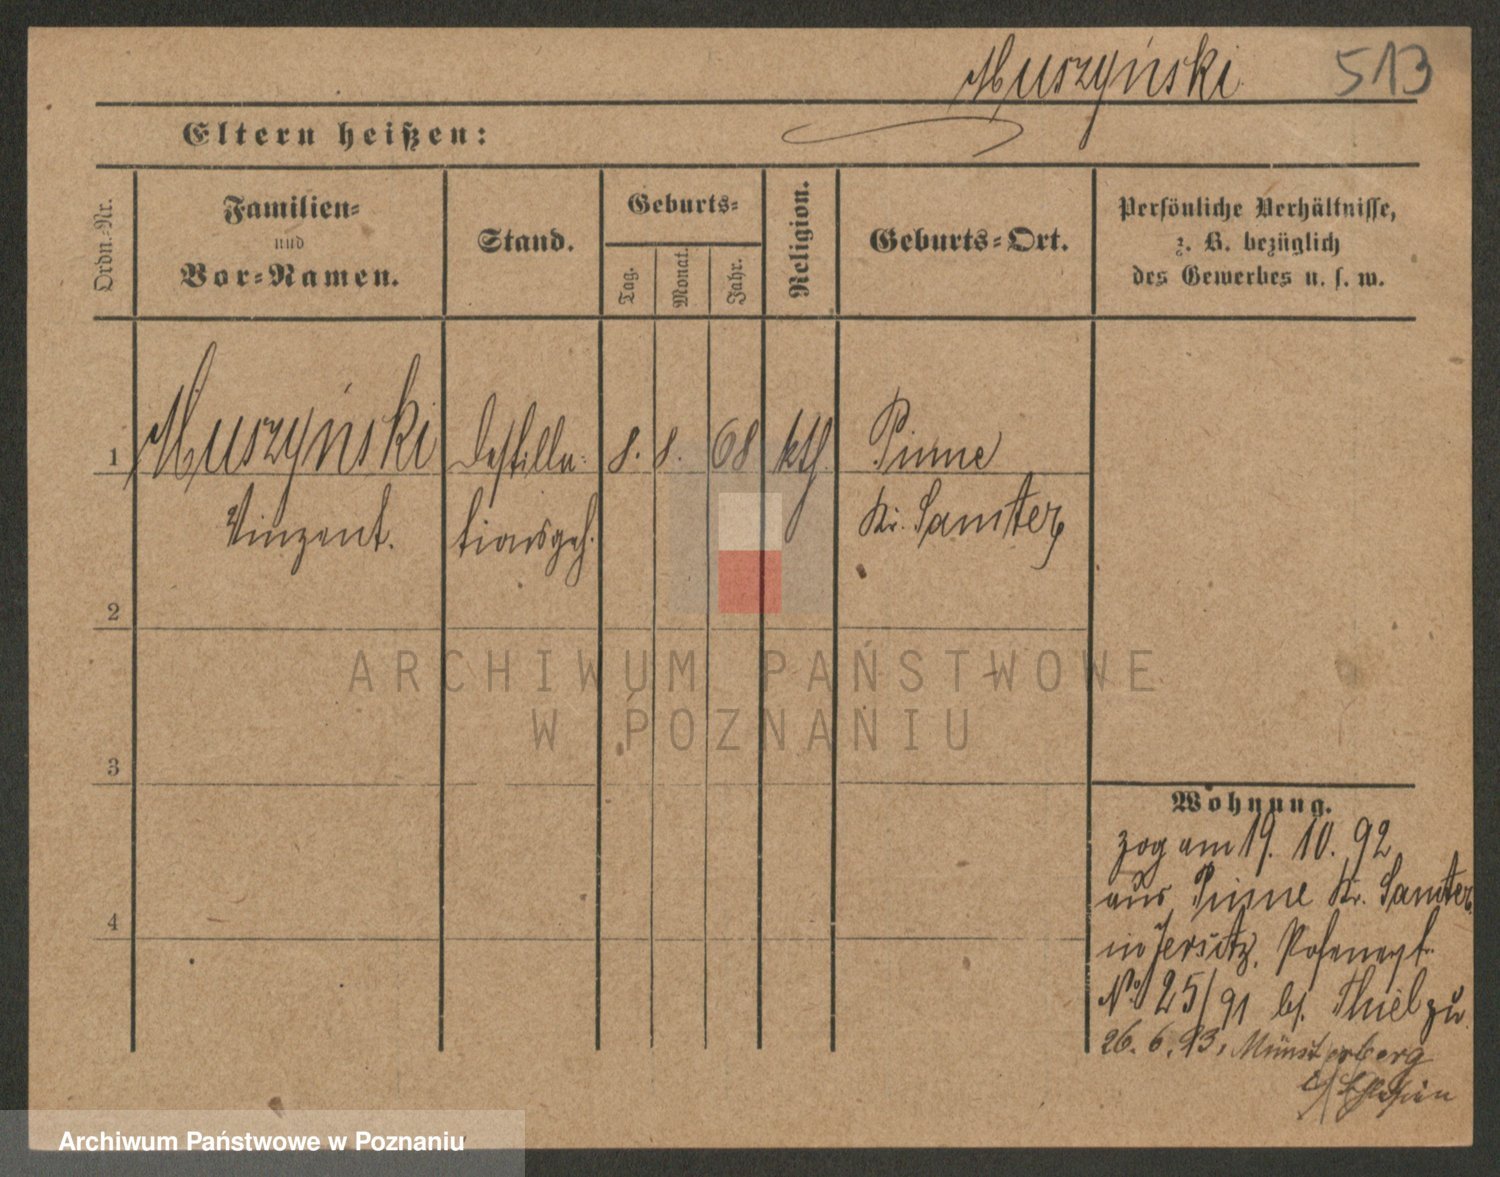 Muszyński 513
Eltern heißen:
Ordn.-Nr.
Familien-
und
Vor-Namen.
Stand.
Geburts-
Tag.
Monat.
Jahr.
Religion.
Geburts-Ort.
Persönliche Verhältnisse,
z. B. bezüglich
des Gewerbes u. s. w.
1 Muszyński Destilla- 8. 8. 68 kth. Pinne
Vinzent. tionsgeh. Kr. Samter
2
3
4
Wohnung.
zog am 19. 10. 92
aus Pinne Kr. Samter
in Jersitz, Posenerst.
No 25/91 bs. Thiel zu
26. 6. 93, Münsterberg
i/ Schlesien
ARCHIWUM PAŃSTWOWE
W POZNANIU
Archiwum Państwowe w Poznaniu